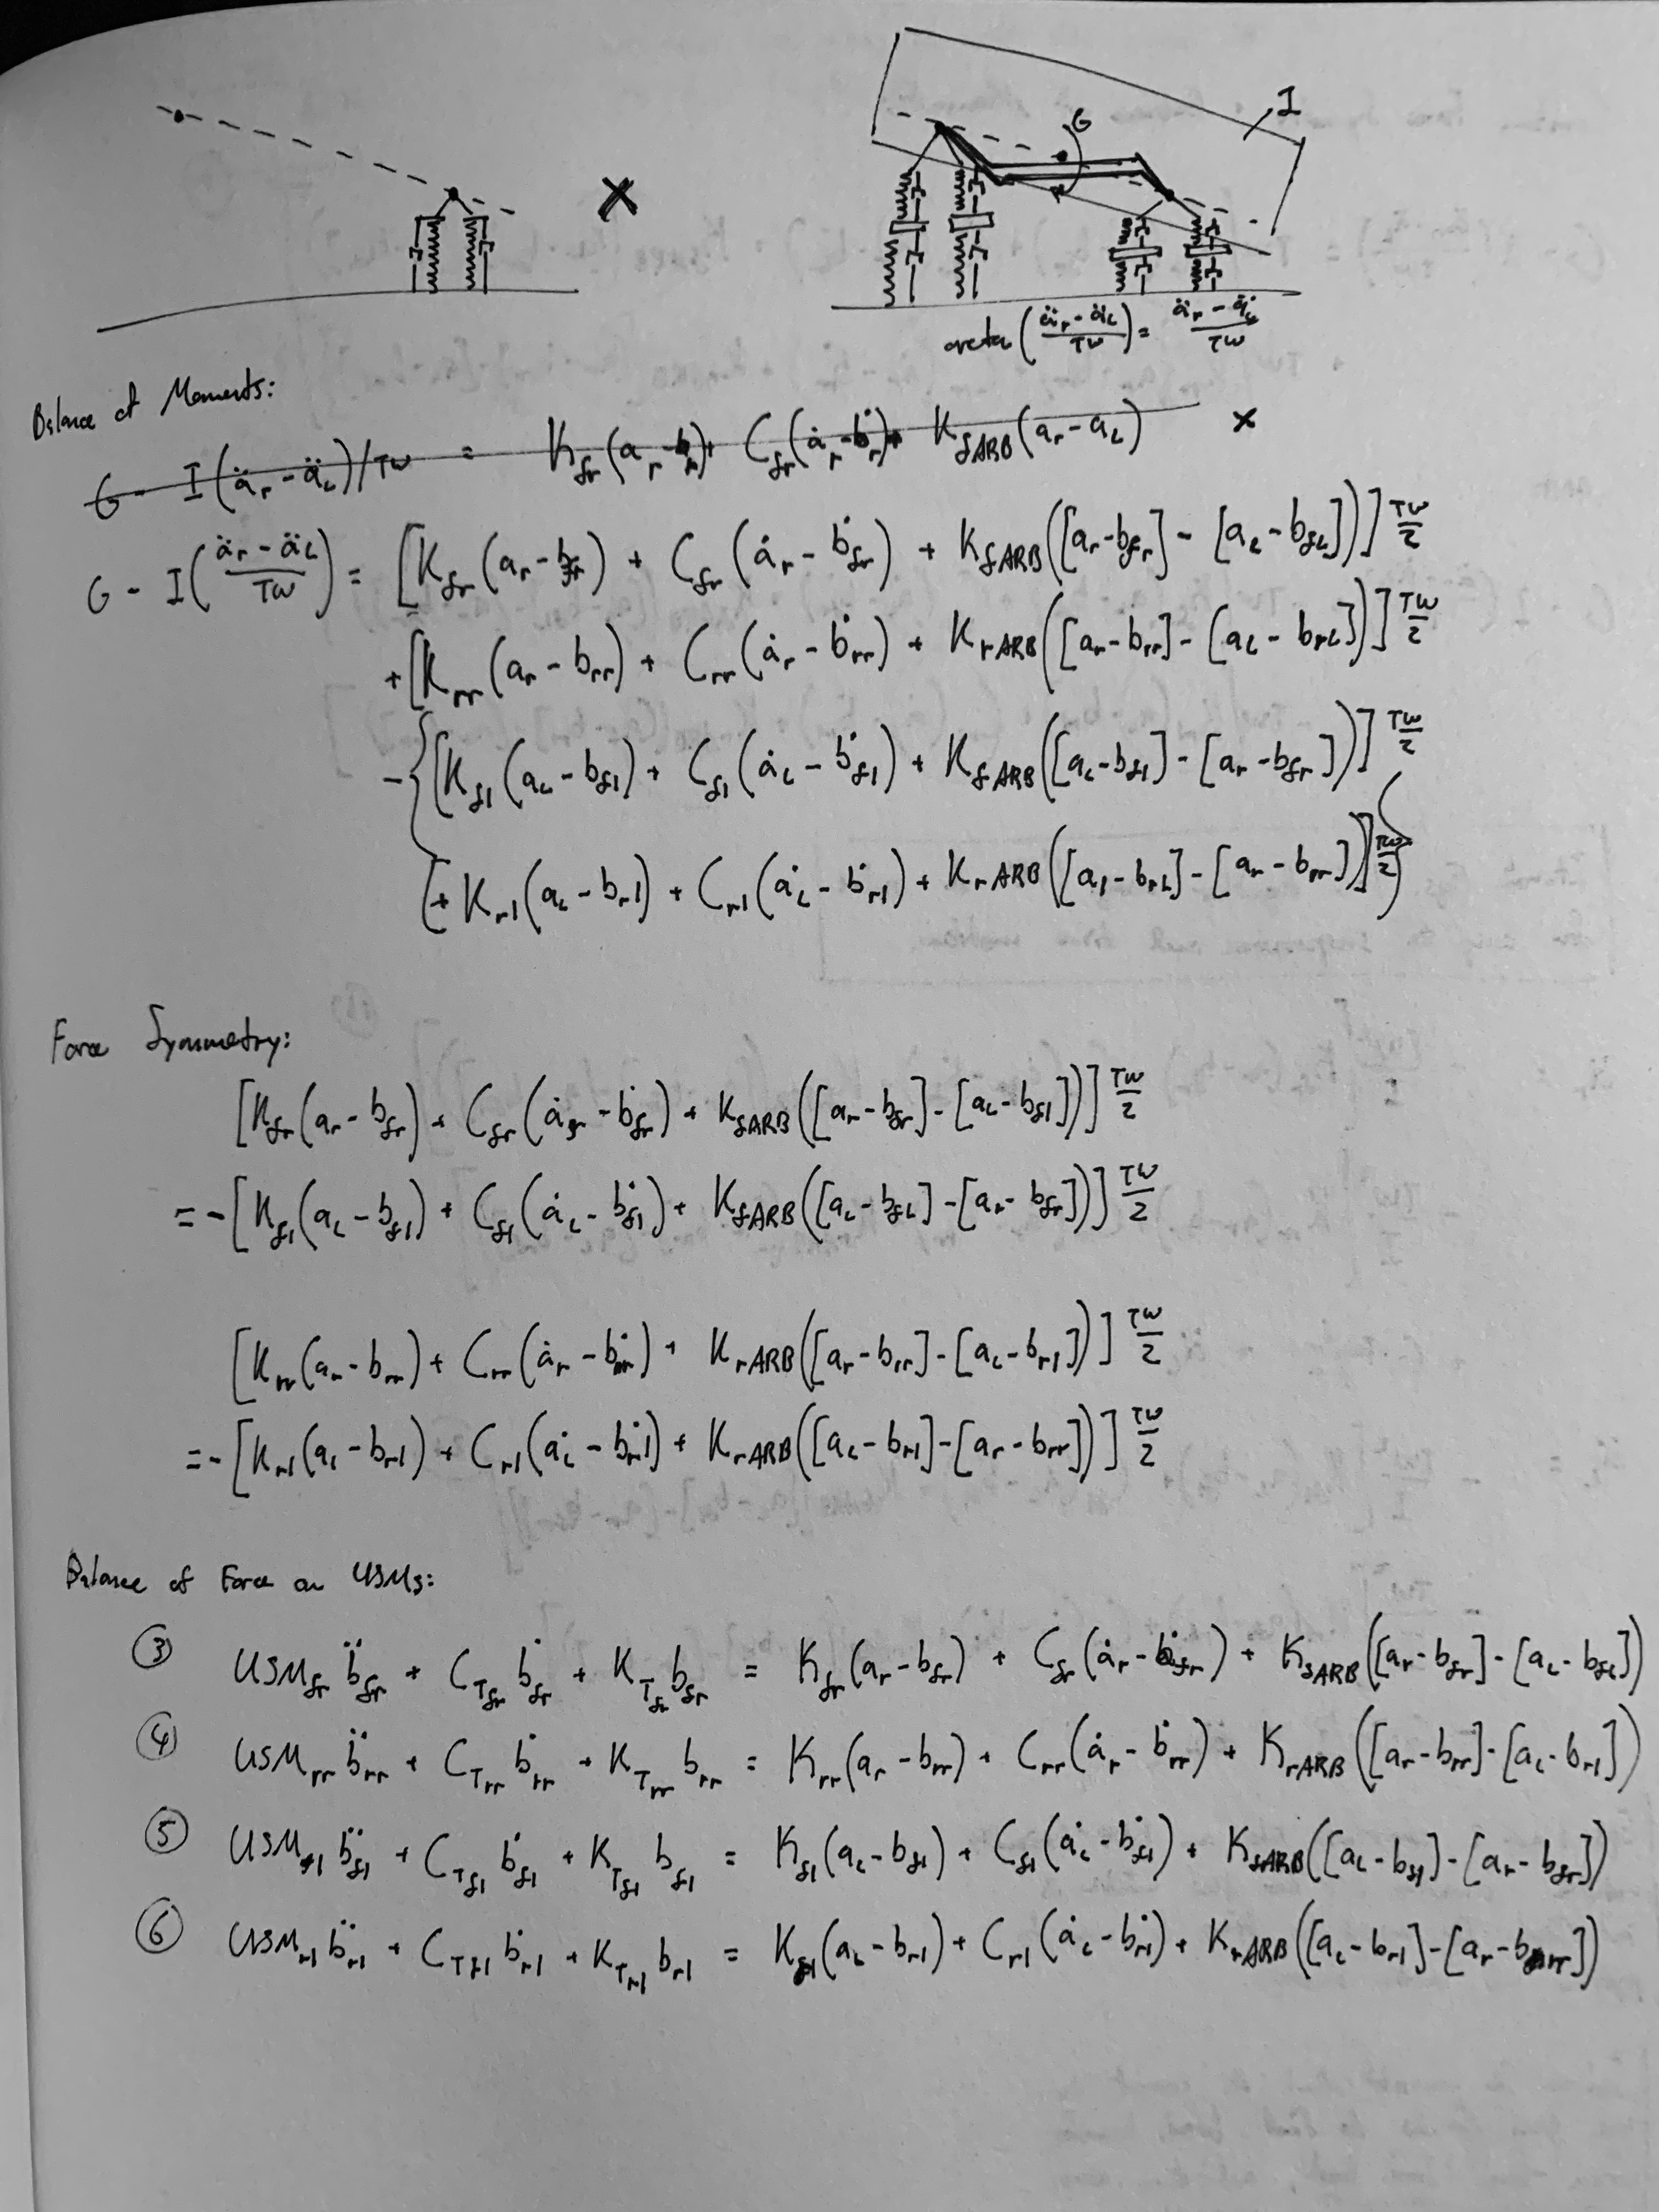 I
G
arctan(äᵣ - ä_L / TW) = äᵣ - ä_L / TW
Balance of Moments:
G - I(äᵣ - ä_L)/TW = K_fr(a_r - b_r) + C_fr(ȧ_r - ḃ_r) + K_fARB(a_r - a_L) ×
G - I((ä_r - ä_L)/TW) = [K_fr(a_r - b_fr) + C_fr(ȧ_r - ḃ_fr) + K_fARB([a_r - b_fr] - [a_L - b_fL])] TW/2
+ [K_rr(a_r - b_rr) + C_rr(ȧ_r - ḃ_rr) + K_rARB([a_r - b_rr] - [a_L - b_rL])] TW/2
- {[K_fl(a_L - b_fl) + C_fl(ȧ_L - ḃ_fl) + K_fARB([a_L - b_fl] - [a_r - b_fr])] TW/2
[+ K_rl(a_L - b_rl) + C_rl(ȧ_L - ḃ_rl) + K_rARB([a_l - b_rL] - [a_r - b_rr])] TW/2}
Force Symmetry:
[K_fr(a_r - b_fr) + C_fr(ȧ_r - ḃ_fr) + K_fARB([a_r - b_fr] - [a_L - b_fl])] TW/2
= - [K_fl(a_L - b_fl) + C_fl(ȧ_L - ḃ_fl) + K_fARB([a_L - b_fL] - [a_r - b_fr])] TW/2
[K_rr(a_r - b_rr) + C_rr(ȧ_r - ḃ_rr) + K_rARB([a_r - b_rr] - [a_L - b_rl])] TW/2
= - [K_rl(a_L - b_rl) + C_rl(ȧ_L - ḃ_rl) + K_rARB([a_L - b_rl] - [a_r - b_rr])] TW/2
Balance of Force on USMs:
③ USM_fr b̈_fr + C_Tfr ḃ_fr + K_Tfr b_fr = K_fr(a_r - b_fr) + C_fr(ȧ_r - ḃ_fr) + K_fARB([a_r - b_fr] - [a_L - b_fL])
④ USM_rr b̈_rr + C_Trr ḃ_rr + K_Trr b_rr = K_rr(a_r - b_rr) + C_rr(ȧ_r - ḃ_rr) + K_rARB([a_r - b_rr] - [a_L - b_rl])
⑤ USM_fl b̈_fl + C_Tfl ḃ_fl + K_Tfl b_fl = K_fl(a_L - b_fl) + C_fl(ȧ_L - ḃ_fl) + K_fARB([a_L - b_fl] - [a_r - b_fr])
⑥ USM_rl b̈_rl + C_Trl ḃ_rl + K_Trl b_rl = K_rl(a_L - b_rl) + C_rl(ȧ_L - ḃ_rl) + K_rARB([a_L - b_rl] - [a_r - b_rr])